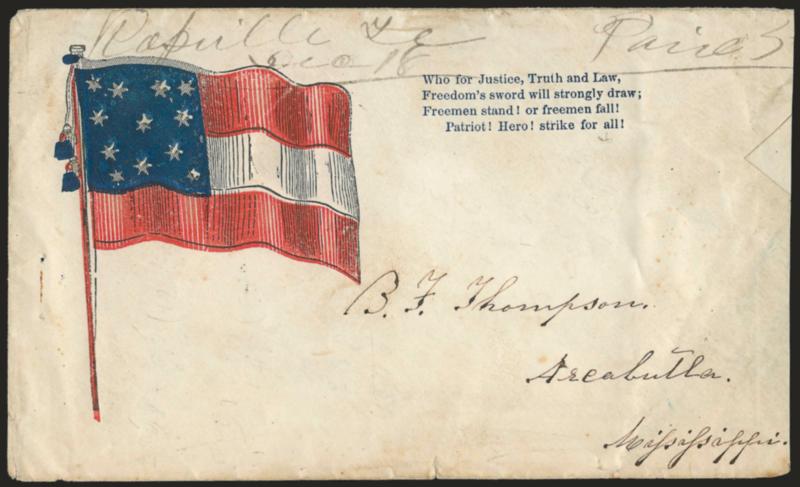 Paid 5
Dec 18
Who for Justice, Truth and Law,
Freedom's sword will strongly draw;
Freemen stand! or freemen fall!
Patriot! Hero! strike for all!
B. F. Thompson.
Arcabutla.
Mississippi.